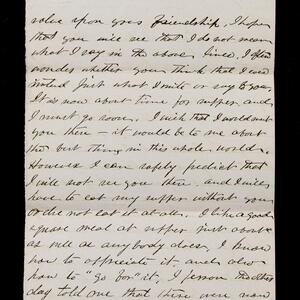 value upon your friendship. I hope
that you will see that I do not mean
what I say in the above lines. I often
wonder whether you think that I
intend just what I write or say to you.
It is now about time for supper and
I must go soon. I wish that I would meet
you there – it would be to me about
the best thing in this whole world.
However I can safely predict that
I will not see you there and I will
have to eat my supper without you
or else not eat it at all. I like a good
square meal at supper just about
as well as any body does, I know
how to appreciate it, and also
how to "go for" it. A person the other
day told me that there were now